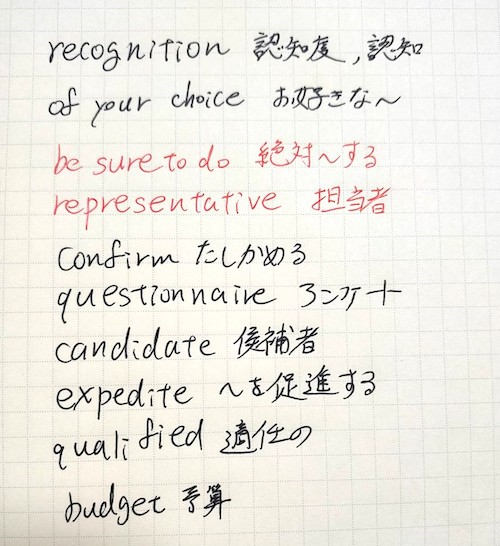 recognition 認知度, 認知
of your choice お好きな〜
be sure to do 絶対〜する
representative 担当者
confirm たしかめる
questionnaire アンケート
candidate 候補者
expedite 〜を促進する
qualified 適任の
budget 予算